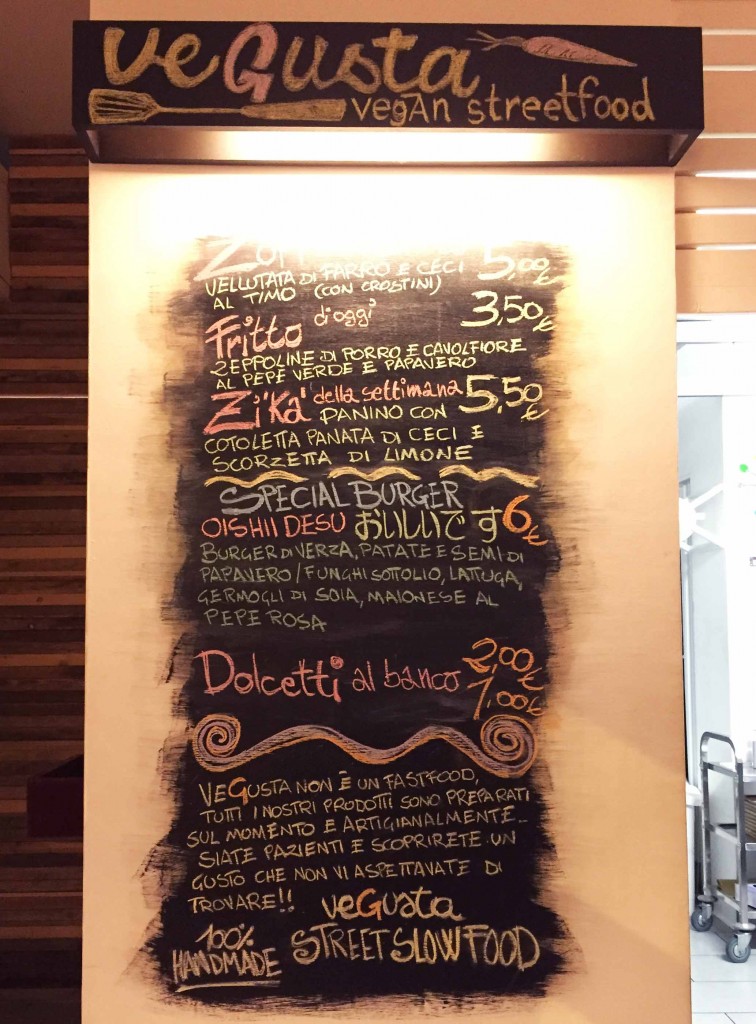 veGusta
vegan streetfood
5,00€
VELLUTATA DI FARRO E CECI
AL TIMO (CON CROSTINI)
Fritto d'oggi 3,50€
ZEPPOLINE DI PORRO E CAVOLFIORE
AL PEPE VERDE E PAPAVERO
Zi'Ka' della settimana 5,50€
PANINO CON
COTOLETTA PANATA DI CECI E
SCORZETTA DI LIMONE
SPECIAL BURGER
OISHII DESU おいしいです 6€
BURGER DI VERZA, PATATE E SEMI DI
PAPAVERO/FUNGHI SOTTOLIO, LATTUGA,
GERMOGLI DI SOIA, MAIONESE AL
PEPE ROSA
Dolcetti al banco 2,00€
1,00€
VEGUSTA NON È UN FASTFOOD,
TUTTI I NOSTRI PRODOTTI SONO PREPARATI
SUL MOMENTO E ARTIGIANALMENTE...
SIATE PAZIENTI E SCOPRIRETE UN
GUSTO CHE NON VI ASPETTAVATE DI
TROVARE!!
veGusta
100% HANDMADE
STREET SLOW FOOD